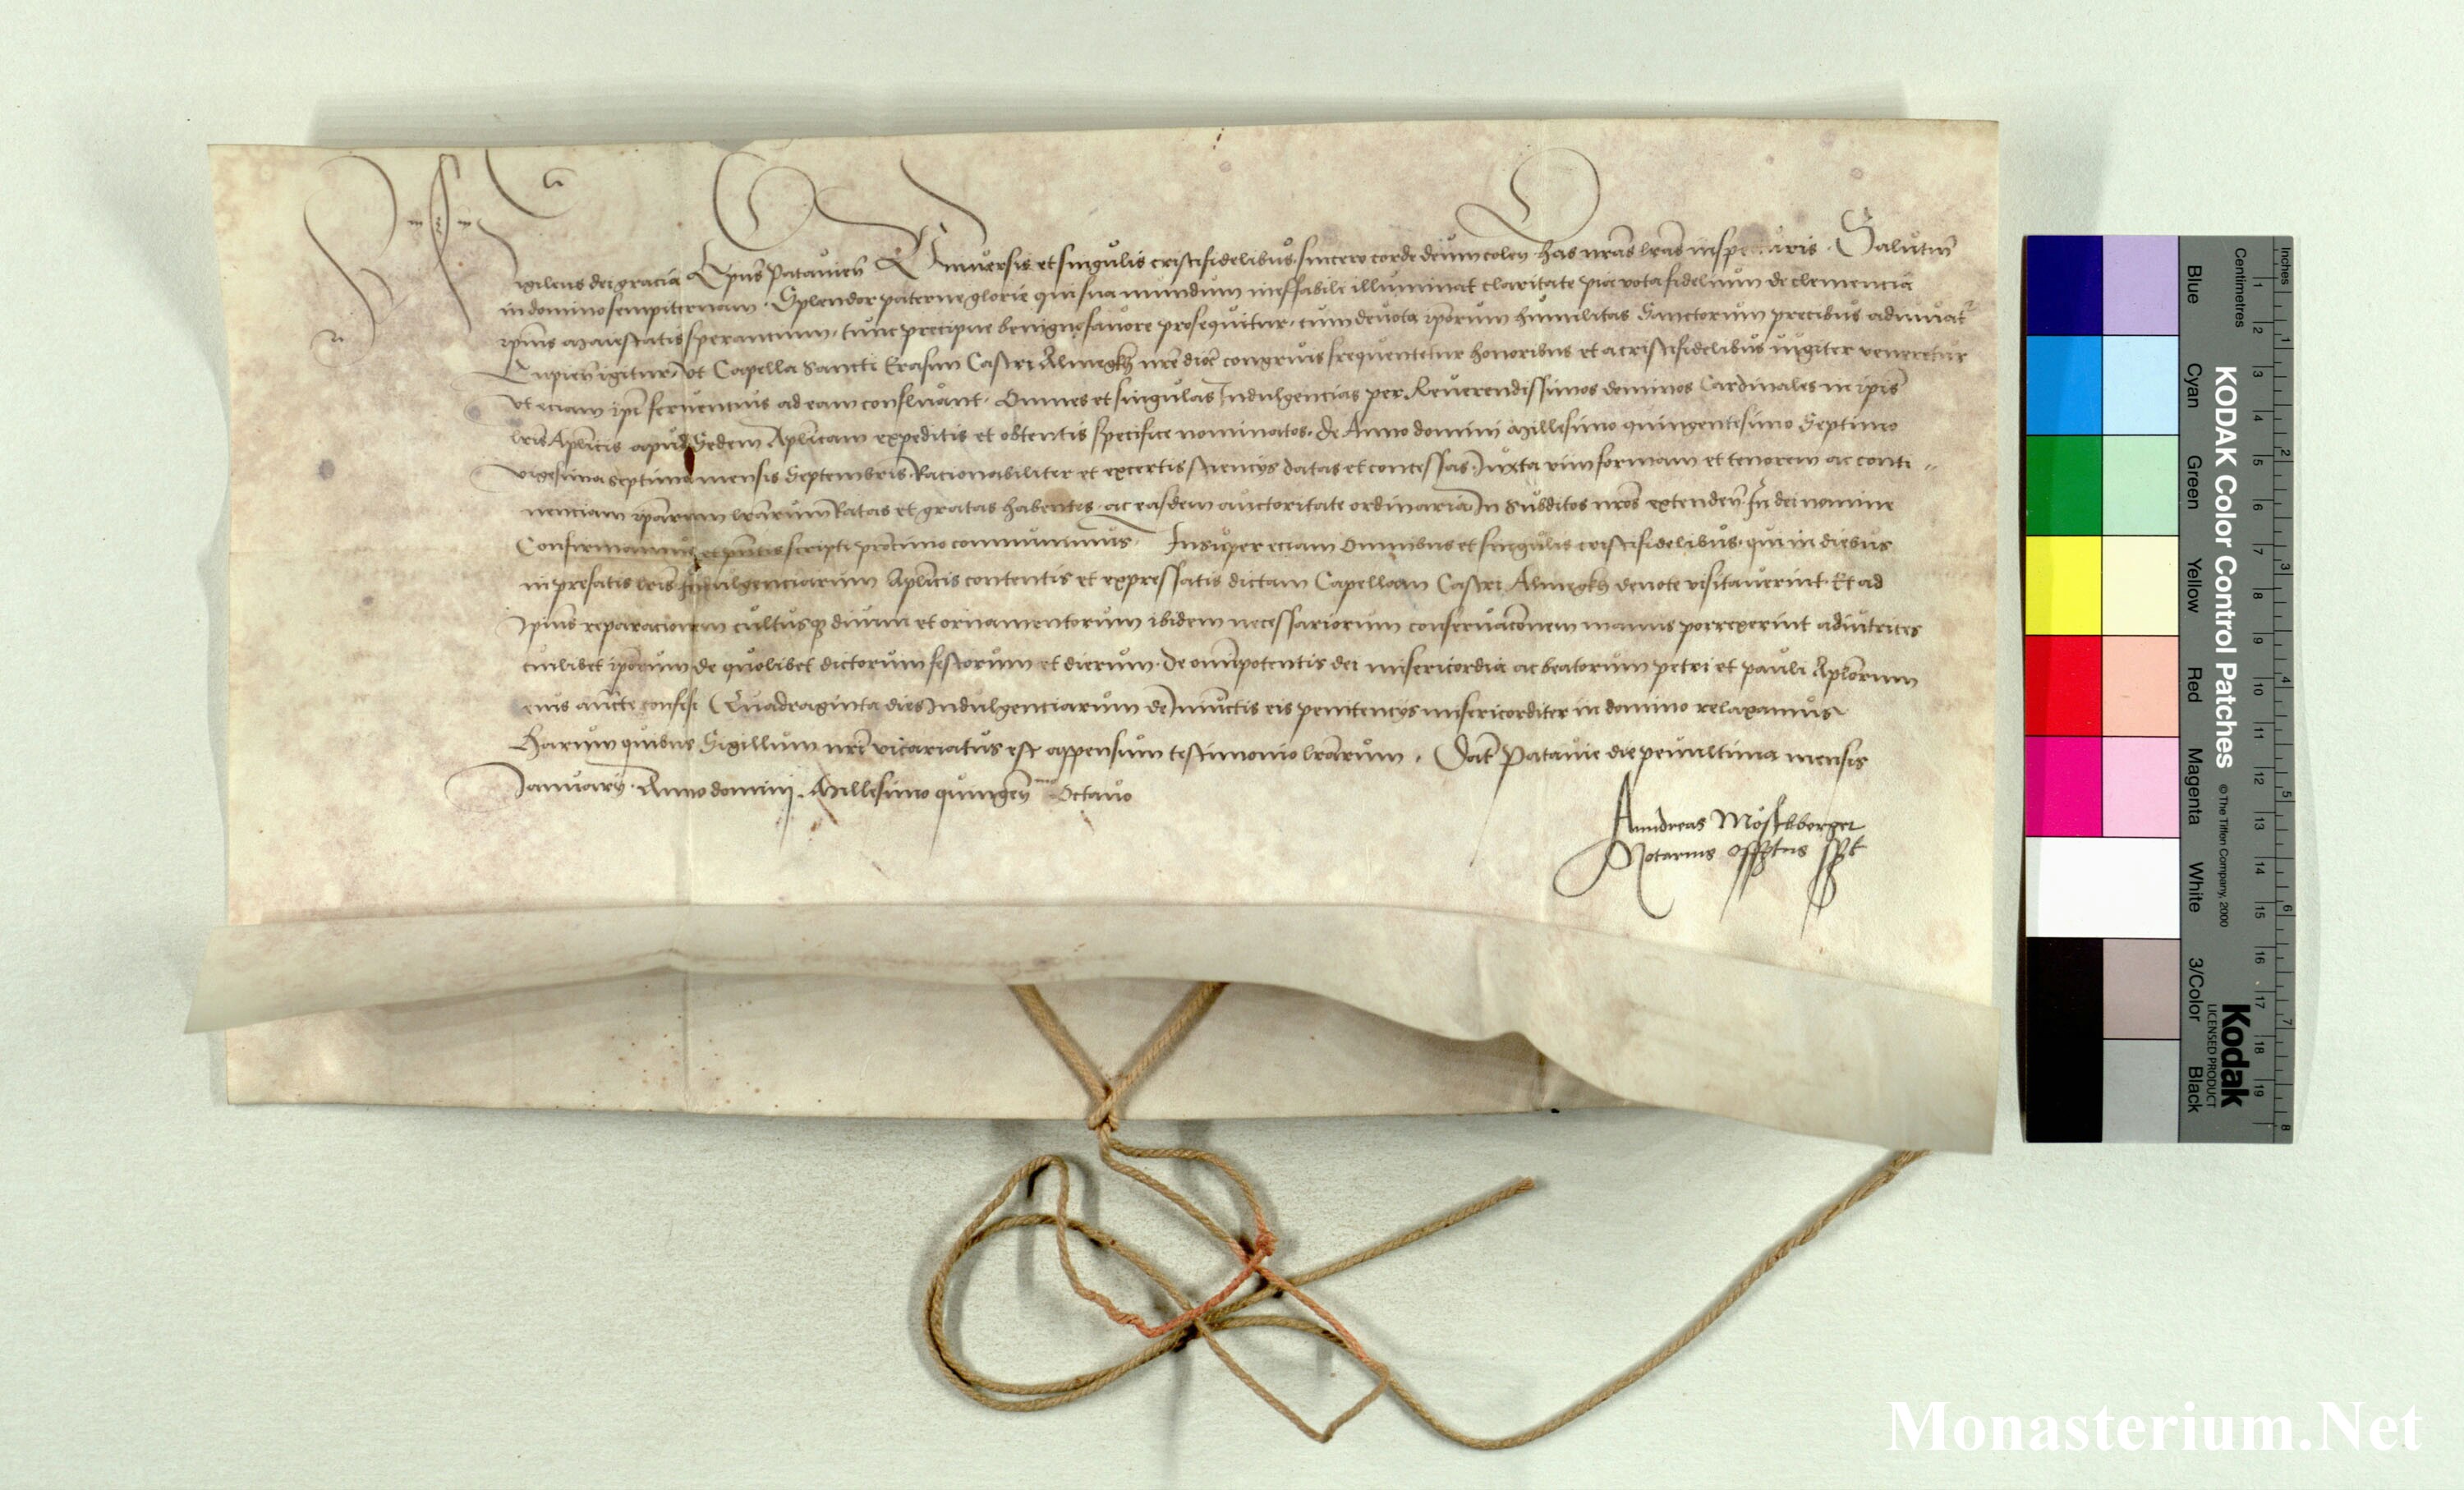 Wigileus dei gracia Ep̃us Patauieñ Vniuersis et singulis cristifidelibus sincero corde deum coleñ has nr̃as lr̃as inspecturis. Salutem̃
in domino sempiternam. Splendor paterne glorie qui sua mundum ineffabile illuminat claritate pia vota fidelium de clemencia
ip̃ius maiestatis sperantium, tunc precipue benigno fauore prosequitur, cum deuota ip̃orum humilitas Sanctorum precibus adiuuat̃
Cupien̄ igitur, vt Capella Sancti Erasmi Castri Almegkh nr̃e dioc̃ congruis frequentetur honoribus et a cristifidelibus iugiter veneretur
vt etiam ip̃i feruentius ad eam confluant. Omnes et singulas Indulgencias per Reuerendissimos dominos Cardinales in ip̃is
lr̃is Aplicis apud Sedem Aplicam expeditis et obtentis specifice nominatos. de Anno domini Millesimo quingentesimo Septimo
vigesima septima mensis Septembris Rationabiliter et ex certis sciencijs datas et concessas Iuxta vim formam et tenorem ac conti„
nenciam ip̃arum lr̃arum Ratas et gratas habentes ac easdem auctoritate ordinaria In Subditos nr̃os extendeñ. In dei nomine
Confirmamus et pñtis scripti pr̃cinio communimus. Insuper eciam Omnibus et singulis cristifidelibus, qui in diebus
in prefatis lr̃is Indulgenciarum Aplicis contentis et expressatis dictam Capellam Castri Almegkh deuote visitauerint. Et ad
Ip̃ius reparacionem cultusq diuini et ornamentorum ibidem necessariorum conseruac̃onem manus porrexerint adiutrices
cuilibet ip̃orum de quolibet dictorum festorum et dierum. de om̃ipotentis dei misericordia ac beatorum petri et pauli Aplõrum
eius auc̃te confisi Quadraginta dies Indulgenciarum de Iniũctis eis penitencijs misericorditer in domino relaxamus
Harum quibus Sigillum nr̃i vicariatus est appensum testimonio lr̃arum. Dat̃ Patauie die penultima mensis
Ianuarij. Anno domini. Millesimo quingeñ^mo Octauo
Anndreas Mös
Notarius
Inches
Centimetres
Blue Cyan Green Yellow Red Magenta White 3/Color Black
KODAK Color Control Patches © The Tiffen Company, 2000 Kodak
LICENSED PRODUCT
1 2 3 4 5 6 7 8 9 10 11 12 13 14 15 16 17 18 19
1 2 3 4 5 6 7 8
Monasterium.Net